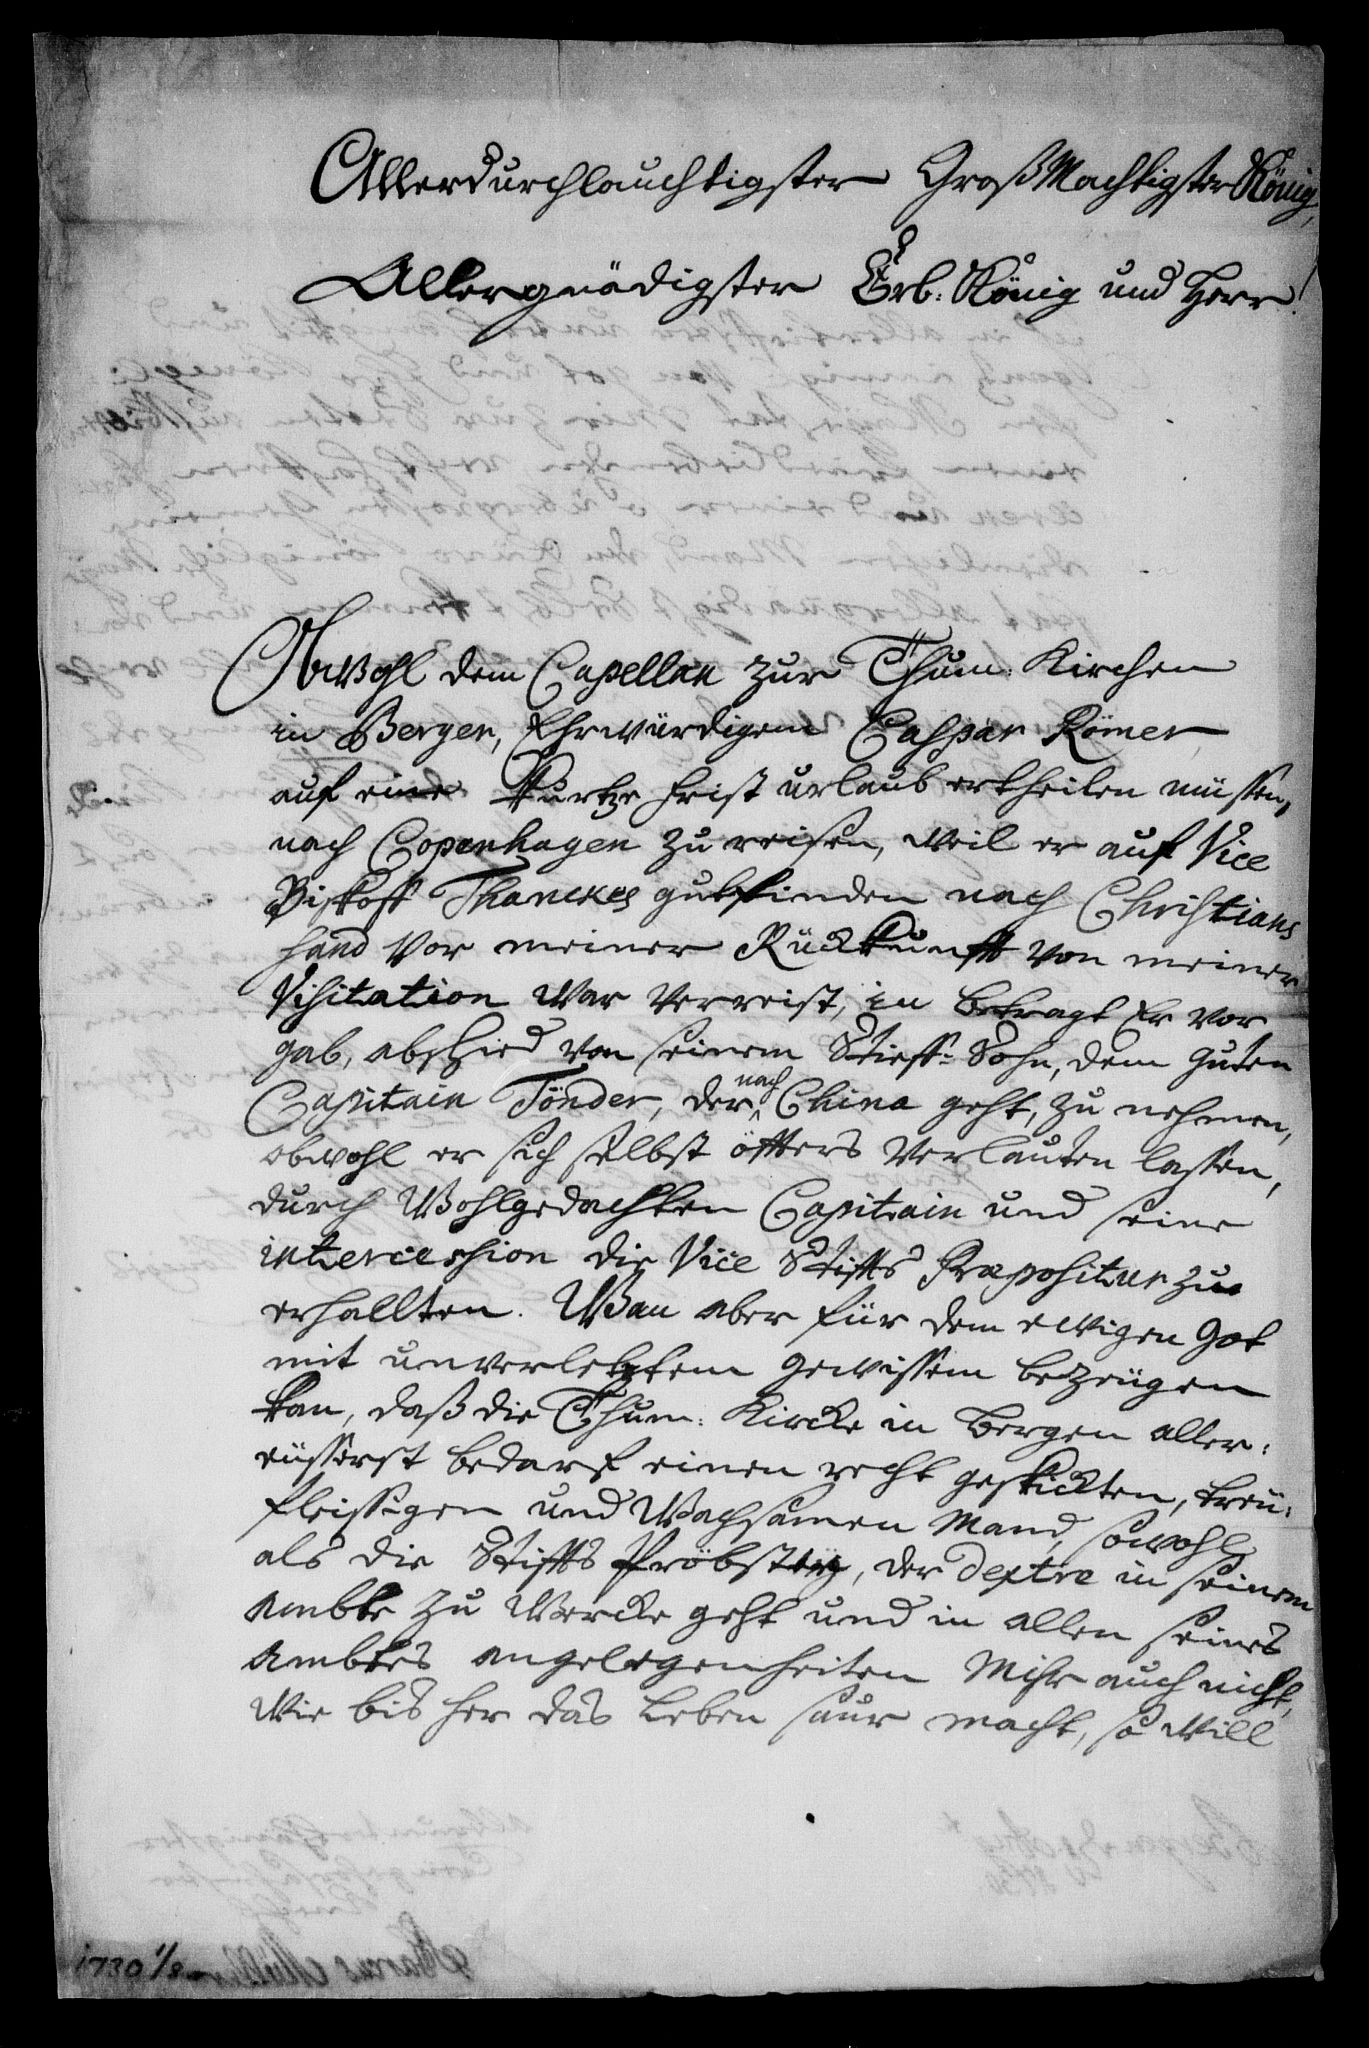 Allerdurchlauchtigster GroßMächtigster König,
Allergnädigster Erb-König und Herr!
Obwohl dem Capellan zur Thum-Kirchen
in Bergen, Ehrwürdigem Caspar Römer
auf eine Kurtze frist urlaub ertheilen müssen,
nach Copenhagen zu reisen, weil er auf Vice
Biskoff Thanckes gutfinden nach Christians
sand vor meiner Rückkunfft von meiner
Visitation war verreist, in betragt Er vor
gab, abschied von seinem Stieff-Sohn, dem guten
Capitain Tönder, der nach China geht, zu nehmen,
obwohl er sich selbst öffters verlauten lassen,
durch Wohlgedachten Capitain und seine
intercession die Vice Stiffts Præpositur zu
erhallten. Wan aber für dem ewigen Got
mit unverletztem gewissem bezeügen
kan, daß die Thum-Kircke in Bergen aller-
eüsserst bedarf einen recht geskickten, treü-
fleissigen und Wachsamen Mand, sowohl
als die Stiffts Pröbstey, der dextre in seinem
Ambte zu Wercke geht und in allen seines
Ambtes angelegenheiten Mihr auch nicht,
wie bis her das Leben saur macht, so will
1730 1/8